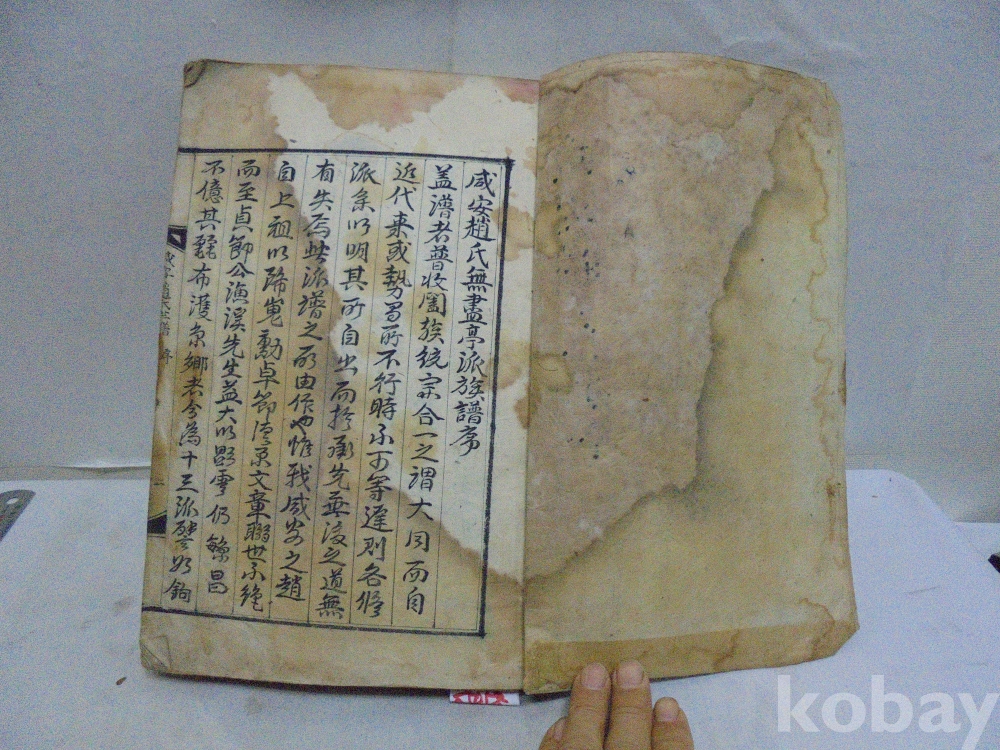 咸安趙氏無盡亭派族譜序
盖譜者普收闔族統宗合一之謂大同而自
近代来或勢有所不行時不可等遲則各修
派系以明其所自出而於承先垂後之道無
有失焉此派譜之所由作也惟我咸安之趙
自上祖以降嵬勳卓節清京文章聯世不絶
而至貞節公漁溪先生益大以昌雲仍繁昌
不億其麗布濩京鄉者今為十三派譬如
kobay